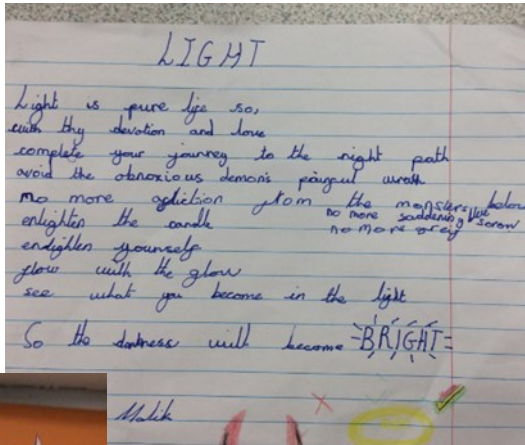 LIGHT
Light is pure life so,
with thy devotion and love
complete your journey to the right path
avoid the obnoxious demon's painful wrath
no more from the monsters below
no more saddening sorow
enlighten the candle
no more
enlighten yourself
flow with the glow
see what you become in the light
So the darkness will become BRIGHT
Malik